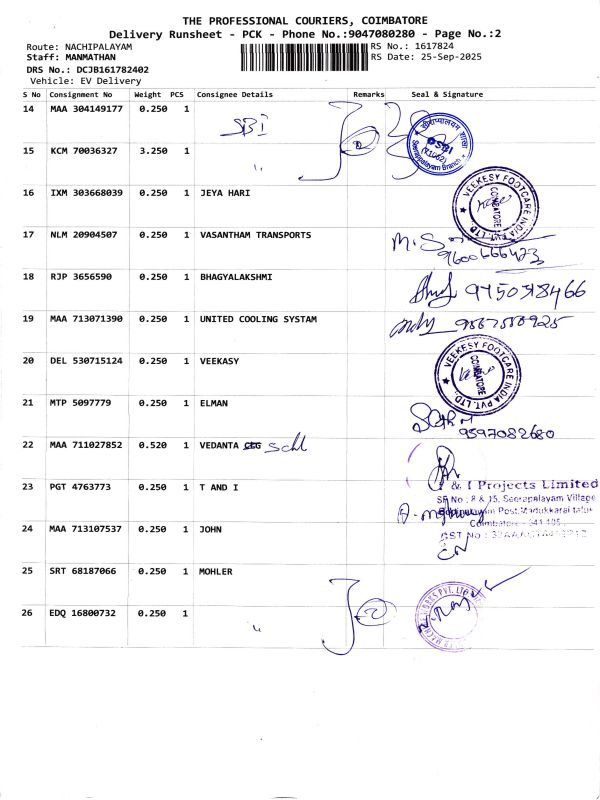 THE PROFESSIONAL COURIERS, COIMBATORE
Delivery Runsheet - PCK - Phone No.:9047080280 - Page No.:2
Route: NACHIPALAYAM
RS No.: 1617824
Staff: MANMATHAN
RS Date: 25-Sep-2025
DRS No.: DCJB161782402
Vehicle: EV Delivery
S No Consignment No Weight PCS Consignee Details Remarks Seal & Signature
14 MAA 304149177 0.250 1 SBI
SBI
15 KCM 70036327 3.250 1 "
16 IXM 303668039 0.250 1 JEYA HARI
VEEKESY FOOTCARE INDIA PVT. LTD. COIMBATORE
17 NLM 20904507 0.250 1 VASANTHAM TRANSPORTS
18 RJP 3656590 0.250 1 BHAGYALAKSHMI
19 MAA 713071390 0.250 1 UNITED COOLING SYSTAM
20 DEL 530715124 0.250 1 VEEKASY
VEEKESY FOOTCARE INDIA PVT. LTD. COIMBATORE
21 MTP 5097779 0.250 1 ELMAN
9597082680
22 MAA 711027852 0.520 1 VEDANTA Schl
23 PGT 4763773 0.250 1 T AND I
& I Projects Limited
SF No : 8 & 15, Seerapalayam Village
Post, Madukkarai taluk
24 MAA 713107537 0.250 1 JOHN
25 SRT 68187066 0.250 1 MOHLER
26 EDQ 16800732 0.250 1 "